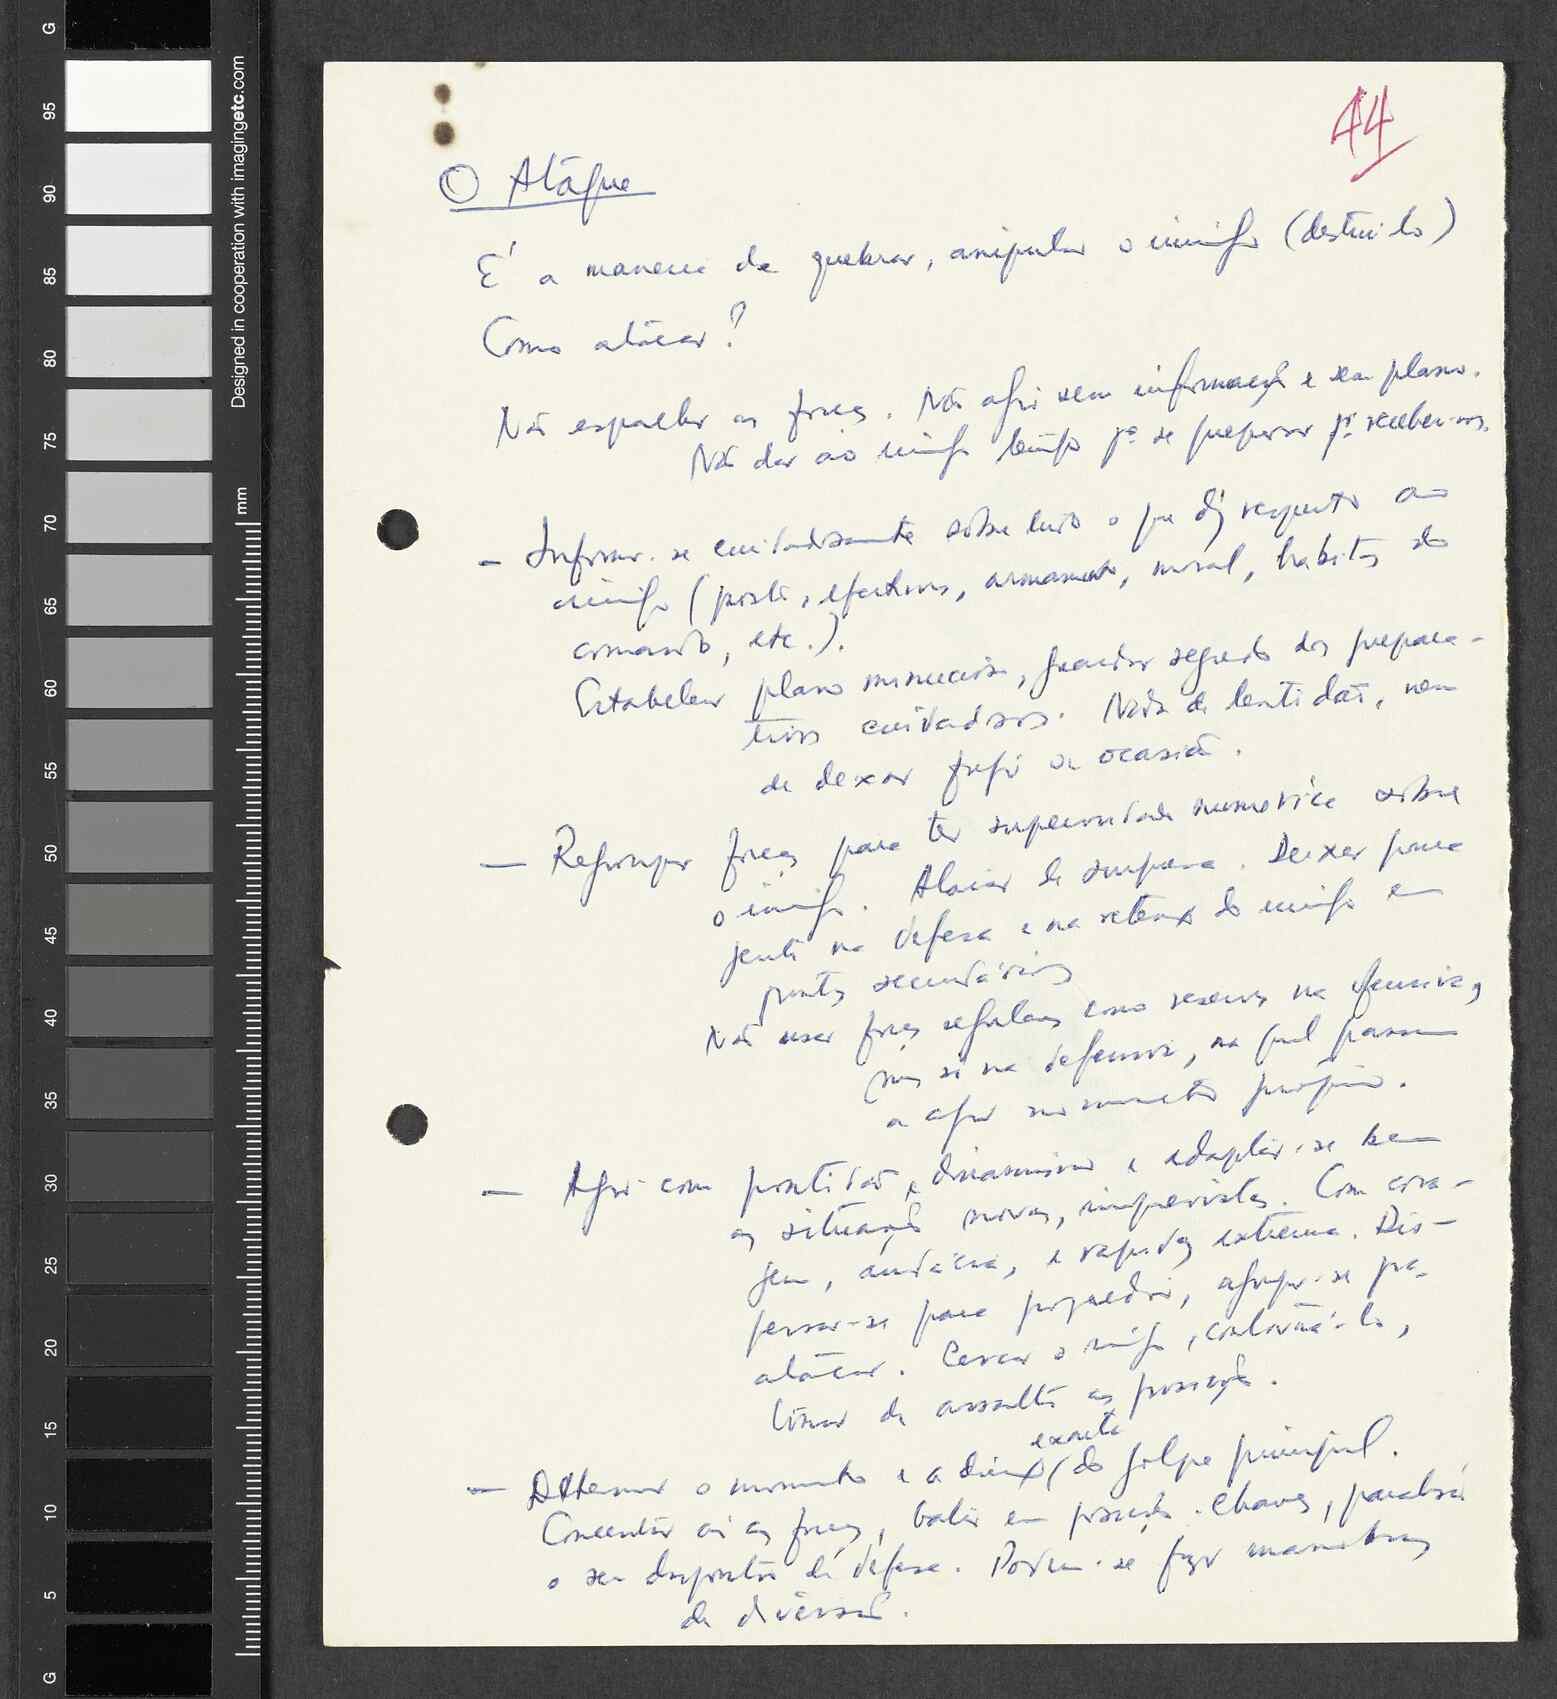 44
O Ataque
É a maneira de quebrar, aniquilar o inimigo (destruí-lo)
Como atacar?
Não espalhar as forças. Não agir sem informação e sem plano.
Não dar ao inimigo tempo pª se preparar pª receber-nos.
- Informar-se cuidadosamente sobre tudo o que diz respeito ao
inimigo (postos, efectivos, armamento, moral, habitos do
comando, etc.).
Estabelecer plano minucioso, guardar segredo dos prepara-
tivos cuidadosos. Nada de lentidão, nem
de deixar fugir a ocasião.
- Reagrupar forças para ter superioridade numerica sobre
o inimigo. Atacar de surpresa. Deixar pouca
gente na defesa e na retenção do inimigo em
pontos secundários
Não usar forças regulares como reservas na ofensiva,
mas só na defensiva, na qual passam
a agir no momento próprio.
- Agir com prontidão, dinamismo e adaptar-se bem
as situações novas, imprevistas. Com cora-
gem, audácia, e rapidez extrema. Dis-
persar-se para progredir, agrupar-se pª
atacar. Cercar o inimigo, contorná-lo,
tomar de assalto as posições.
- Determinar o momento e a direcção exacta do golpe principal.
Concentrar aí as forças, bater em posições-chaves, paralisar
o seu dispositivo de defesa. Podem-se fazer manobras
de diversão.
Designed in cooperation with imagingetc.com
mm
G
95
90
85
80
75
70
65
60
55
50
45
40
35
30
25
20
15
10
5
G